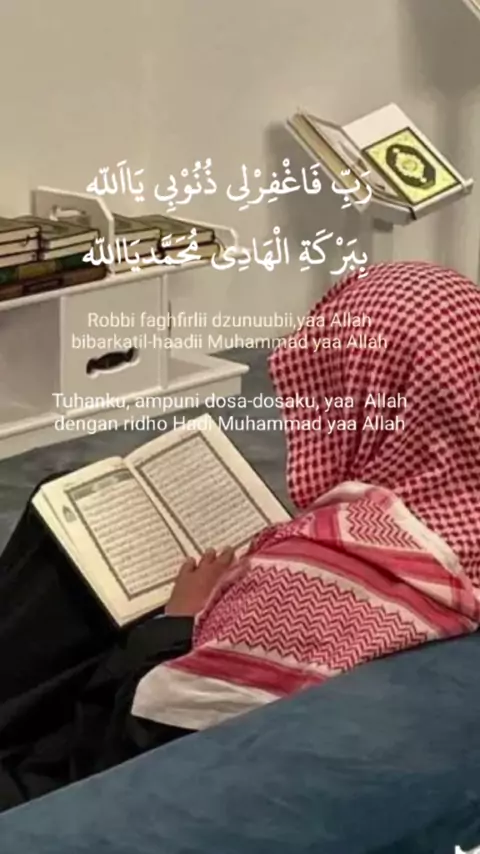 رَبِّ فَاغْفِرْلِى ذُنُوْبِى يَااَللّٰه
بِبَرْكَةِ الْهَادِى مُحَمَّديَااللّٰه
Robbi faghfirlii dzunuubii,yaa Allah
bibarkatil-haadii Muhammad yaa Allah
Tuhanku, ampuni dosa-dosaku, yaa Allah
dengan ridho Hadi Muhammad yaa Allah